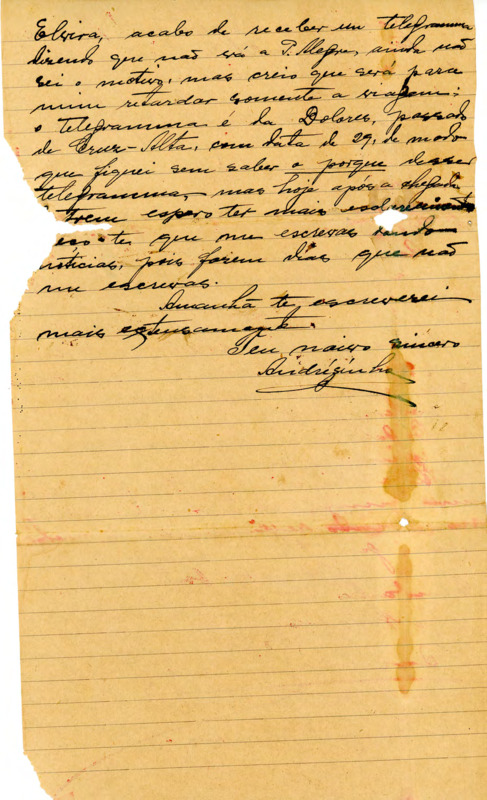 Elvira, acabo de receber um telegramma
dizendo que não vá a P. Alegre, ainda não
sei o motivo, mas creio que será para
mim retardar somente a viagem;
o telegramma é da Dolores, passado
de Cruz-Alta, com data de 29, de modo
que fiquei sem saber o porque desse
telegramma, mas hoje após a chegada
trem espero ter mais esclarecimentos
eço-te, que me escrevas dando
noticias, pois fazem dias que não
me escrevas.
Amanhã te escreverei
mais extensamente.
Teu noivo sincero
Andrézinho